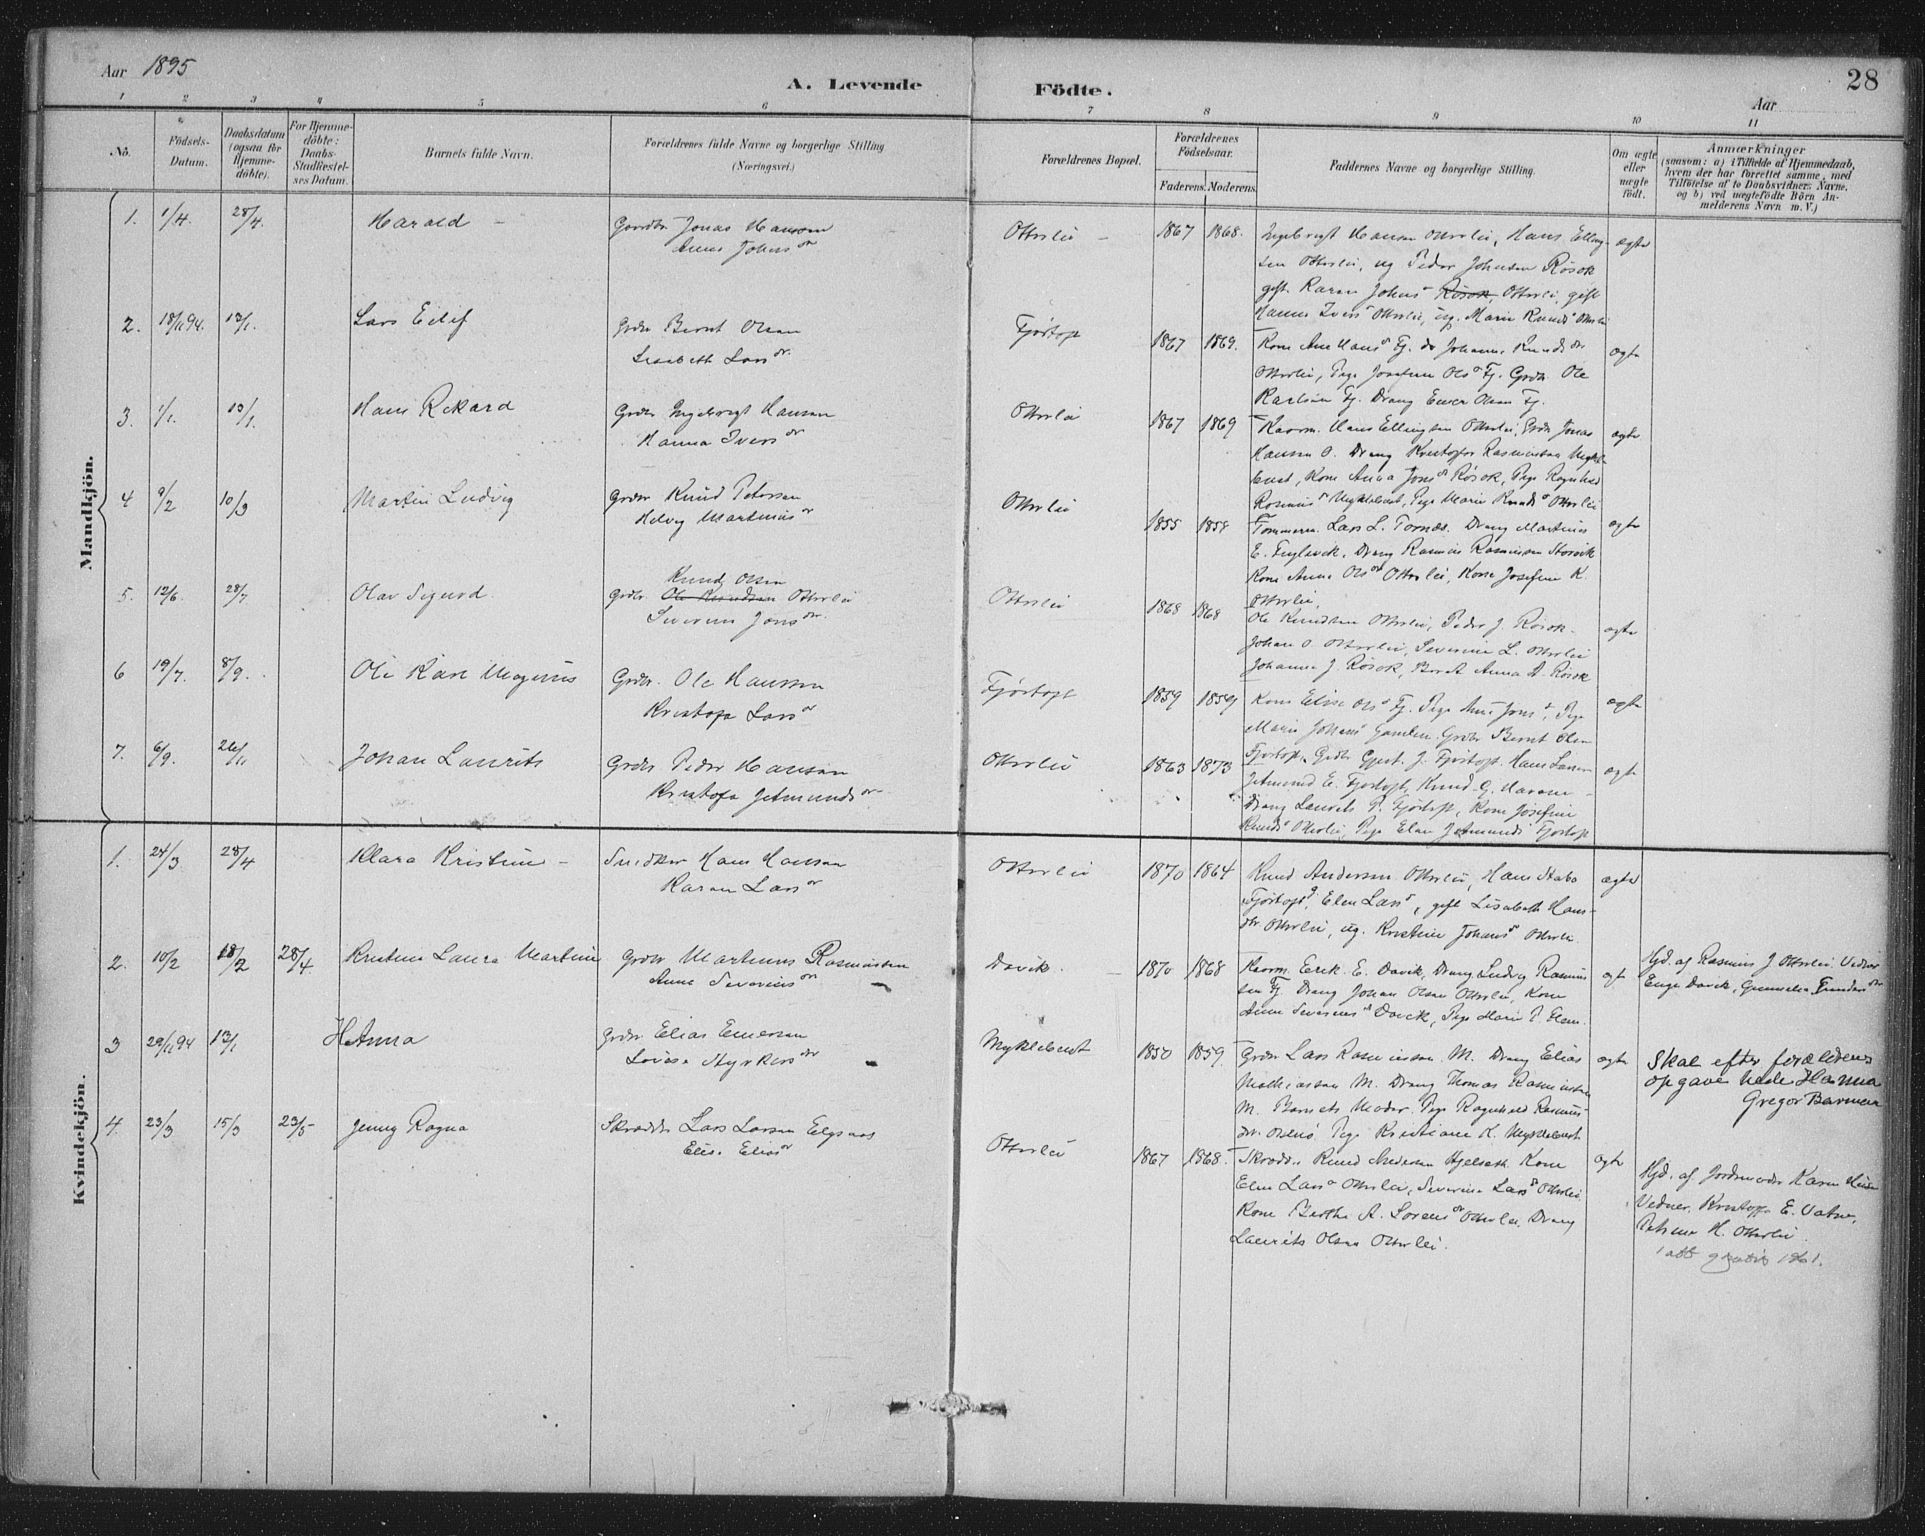 Aar 1895
A. Levende Födte.
Aar
28
1 2 3 4 5 6 7 8 9 10 11
No.
Födsels-Datum.
Daabsdatum (ogsaa for Hjemme-döbte).
For Hjemme-döbte: Daabs-Stadfæstel-ses Datum.
Barnets fulde Navn.
Forældrenes fulde Navne og borgerlige Stilling
(Næringsvei.)
Forældrenes Bopæl.
Forældrenes Födselsaar.
Faderens. Moderens.
Faddernes Navne og borgerlige Stilling.
Om ægte eller uægte födt.
Anmærkninger
(saasom: a) i Tilfælde af Hjemmedaab,
hvem der har forrettet samme, med
Tilföielse af to Daabsvidners Navne,
og b) ved uægtefödte Börn An-
melderens Navn m. V.)
Mandkjön.
1. 1/4. 28/4. Harald Gaardbr Jonas Hansen
Anne Johns dr
Otterlei 1867 1868. Ingebrigt Hansen Otterlei, Hans Elling- ægte
sen Otterlei, ug Peder Johnsen Rösok
gift Karen Johns Rösok, Otterlei, gift
Hanna Ivers Otterlei, ug. Marie Knuds Otterlei
2. 18/11 94. 13/1. Lars Eilif Grdbr Bernt Olsen
Lisabeth Lars dr.
Fjörtoft 1867 1869. Kone Ane Hans Fj. do Johanne Knuds dr ægte
Otterlei, Pige Josefine Ols Fj. Grdbr Ole
Karlsen Fj. Dreng Olsen Fj.
3. 1/1. 13/1. Hans Rikard Grdbr Ingebrigt Hansen
Hanna Ivers dr
Otterlei 1867 1869 Kaarm. Hans Ellingsen Otterlei, Grdbr Jonas ægte
Hansen O. Dreng Kristoffer Rasmussen Mykle-
bust, Kone Anna Jons Rösok, Pige Ragnhild
Rasmus Myklebust, Pige Marie Knuds Otterlei
4 9/2 10/3 Martin Ludvig Grdbr Knud Petersen
Helvig Martinus dr
Otterlei 1855 1858 Tömmerm. Lars L. Tornes. Dreng Martinus ægte
E. Dreng Rasmus Rasmussen
Kone Anna Ols Otterlei, Kone Josefine K.
Otterlei.
5. 12/6. 28/7 Olav Sigurd. Knud Olsen
Grdbr Ole Knudsen Otterlei
Severine Jons dr.
Otterlei 1868 1868 Ole Knudsen Otterlei, Peder J. Rösok. ægte
Johan O. Otterlei, Severine L. Otterlei
Johanne J. Rösok, Anna A. Rösok
6 19/7. 8/9. Ole Karl Magnus Grdbr. Ole Hansen
Kristofa Lars dr
Fjörtoft 1859 1859 Kone Elise Ols Fj. Pige Ane Jons, Pige ægte
Marie Johans Gamlem. Grdbr Bernt Olsen
7. 6/9. 26/11 Johan Laurits Grdbr Peder Hansen
Kristofa Jetmunds dr
Otterlei 1863 1873 Fjörtoft, Grdbr J. Fjörtoft. Hans Larsen ægte
Jetmund E. Fjörtoft, Knud G.
Dreng Laurits P. Fjörtoft, Kone Josefine
Knuds Otterlei, Pige Elen Jetmunds Fjörtoft
Kvindekjön.
1. 24/3 28/4 Klara Kristine Snedker Hans Hansen
Karen Lars dr
Otterlei 1870 1864 Knud Andersen Otterlei, Hans ægte
Fjörtoft, Elen Lars, gift Lisabeth Hans-
dr Otterlei, ug. Kristine Johans Otterlei.
2. 10/2 18/2 28/4 Kristine Laura Martine Grdbr Martinus Rasmussen
Anna Severins dr
Davik. 1870 1868 Kaarm. Erik E. Davik, Dreng Ludvig Rasmus- ægte
sen Fj. Dreng Johan Olsen Otterlei, Kone
Anne Severins Davik, Pige Marie P.
Hjd. af Rasmus J. Otterlei. Vedner
Davik, Gunnelia dr
3 29/11 94 13/1 HAnna Grdbr Elias
Lovise Styrkers dr
Myklebust 1850 1859. Grdbr Lars Rasmussen M. Dreng Elias ægte
Mathiassen M. Dreng Thomas Rasmussen
M. Barnets Moder. Pige Ragnhild Rasmus-
dr. Pige Kristiane K. Myklebust
Skal efter forældrenes
opgave hede Hanna
Gregor Barmen
4 23/3 15/3 23/5 Jenny Ragna Skrædder Lars Larsen
Elise Elias dr
Otterlei 1867 1868. Skrædd. Knud Andersen Hjelseth. Kone ægte
Elen Lars Otterlei, Severine Lars Otterlei.
Kone Berthe A. Sorens Otterlei, Dreng
Laurits Olsen Otterlei.
Hjd. af Jordmoder Karen
Vedner. Kristoffer E.
H. Otterlei.
1 att gratis 1961.